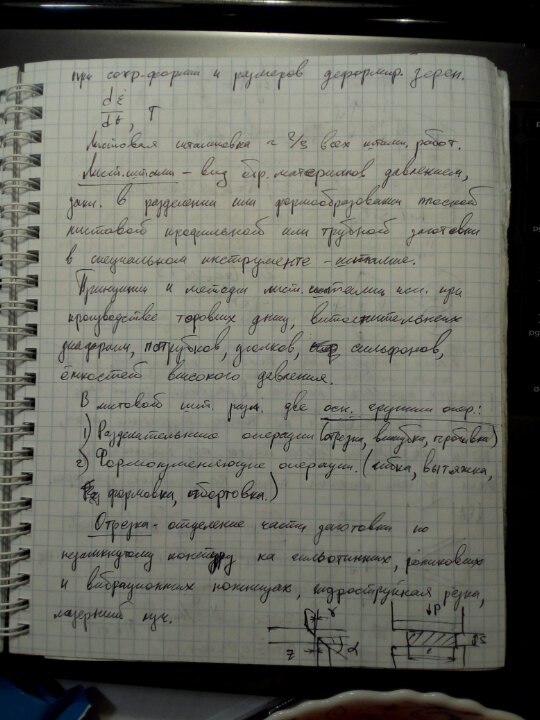 при сохр. формы и размеров деформир. зерен.
dε̇
dt, T
Листовая штамповка ≈ 2/3 всех штамп. работ.
Лист. штамп – вид обр. материалов давлением,
закл. в разделении или формообразовании плоской
листового профильного или трубного заготовки
в специальном инструменте – штампе.
Принципы и методы лист. штамповки исп. при
производстве торовых днищ,
диафрагм, патрубков, уголков, сильфонов,
ёмкостей высокого давления.
В листовой шт. разл. две осн. группы опер.:
1) Разделительные операции (отрезка, вырубка, пробивка)
2) Формоизменяющие операции. (гибка, вытяжка,
формовка, отбортовка.)
Отрезка – отделение части заготовки по
незамкнутому контуру на гильотинных, роликовых
и вибрационных ножницах, гидроструйная резка,
лазерный луч.
γ P
z α